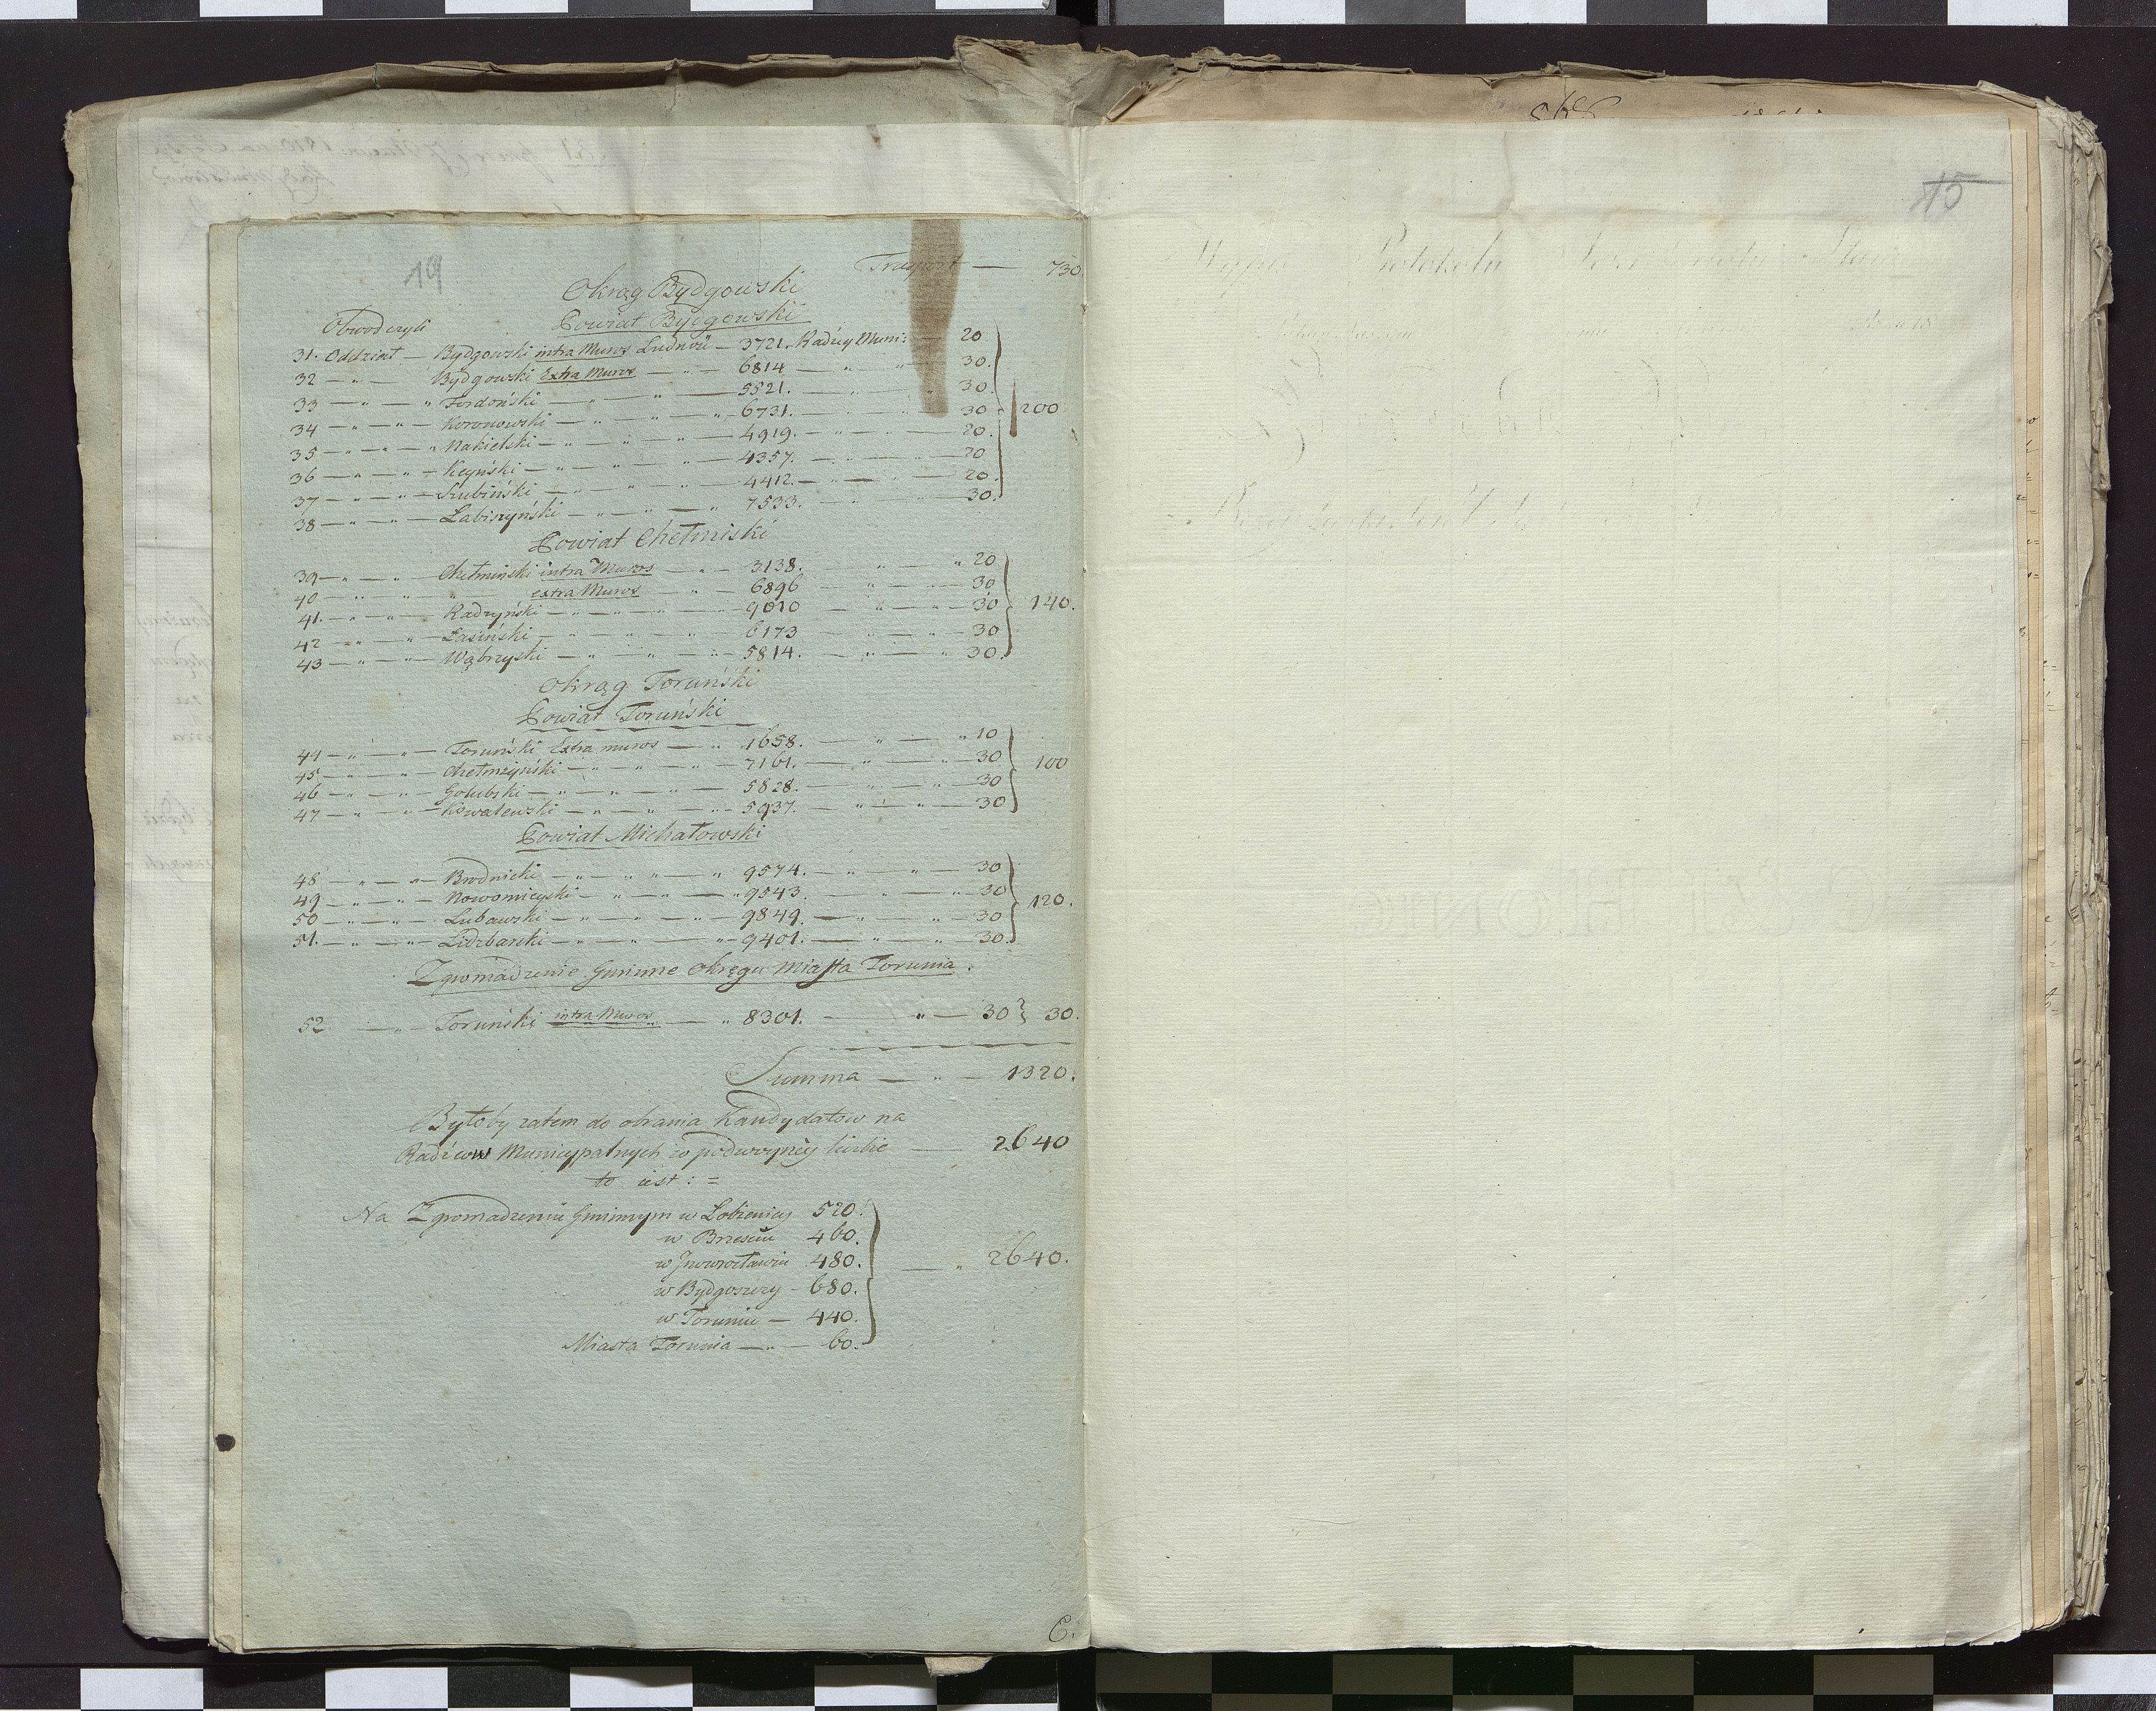 19
Transport — 730.
Okrąg Bydgowski
Powiat Bydgowski
Obwod czyli
31. Oddział — Bydgowski intra Muros Ludnoś — 3721. Radźcy Muni: — 20
32 — " — Bydgowski Extra Muros — " — 6814 — " — " 30.
33 — " — " Fordoński — " — " — 5821. — " — " 30.
34 — " — " — Koronowski — " — " — " 6731. — " — " 30 } 200
35 — " — " — Nakielski — " — " — " — 4919. — " — " — 20.
36 — " — " — Kcyński — " — " — " — 4357. — " — " — 20
37 — " — " — Szubiński — " — " — " — 4412. — " — " — 20.
38 — " — " — Łabiszyński — " — " — " 7533. — " — " — 30.
Powiat Chełmiński
39 — " — " — Chełmiński intra Muros — " — 3138. " — " 20
40 — " — " — " extra Muros — " — 6896 — " — " 30
41. — " — " — Radzyński — " — " — " — 9010 — " — " — 30 } 140.
42 — " — " — Łasiński — " — " — " 6173 — " — " — 30
43 — " — " — Wąbrzyski — " — " — " — 5814. — " — " 30.
Okrąg Toruński
Powiat Toruński
44 — " — " — Toruński Extra muros — " 1658. — " — " 10
45 — " — " — Chełmżyński — " — " — " — 7161. — " — " — 30 } 100
46 — " — " — Golubski — " — " — " — 5828. — " — " — 30
47 — " — " — Kowalewski — " — " — " — 5937. — " — " — 30
Powiat Michałowski
48 — " — " — Brodnicki — " — " — " 9574. — " — " — 30
49 — " — " — Nowomieyski — " — " — " 9543 — " — " 30 } 120.
50 — " — " — Lubawski — " — " — " — 9849. — " — " — 30
51. — " — " — Lidzbarski — " — " — " — 9401. — " — " — 30.
Zgromadzenie Gminne Okręgu Miasta Torunia.
52 — " — Toruński intra Muros — " 8301. — " — 30 } 30.
Summa — " — 1320.
Byłoby zatem do obrania Kandydatow na
Radźcow Municypalnych w podwoyney liczbie — 2640
to iest : =
Na Zgromadzeniu Gminnym w Łobżenicy 520.
w Brześciu 460.
w Jnowrocławiu 480. } — " 2640.
w Bydgoszczy — 680.
w Toruniu — 440.
Miasta Torunia — " — 60.
C.
15